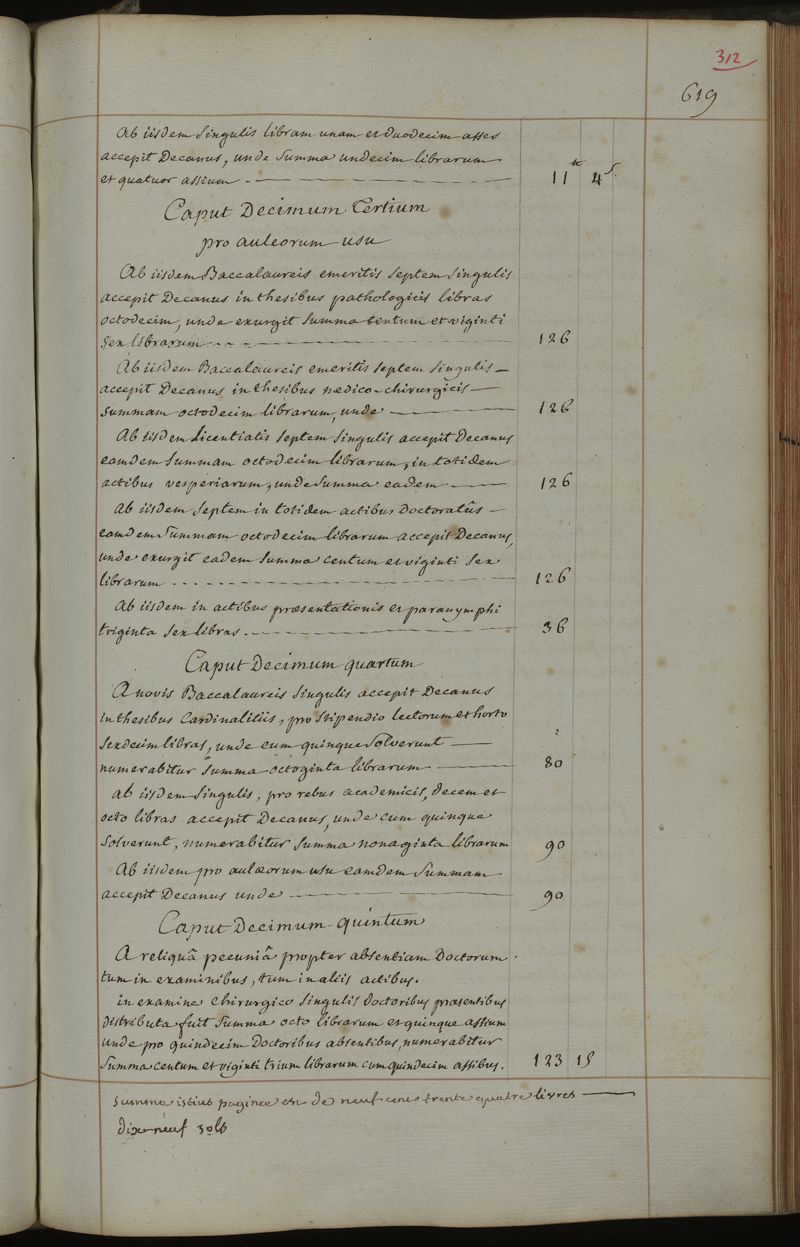 312
619
Ab iisdem singulis libram unam et duodecim asses
accepit Decanus, unde summa undecim librarum
et quatuor assium 11 tt 4 s
Caput Decimum Tertium
pro auleorum usu
Ab iisdem Baccalaureis emeritis septem singulis
accepit Decanus in thesibus pathologicis libras
octodecim, unde exurgit summa centum et viginti
sex librarum 126
Ab iisdem Baccalaureis emeritis septem singulis
accepit Decanus in thesibus medico-chirurgicis
summam octodecim librarum, unde 126
Ab iisdem licentiatis septem singulis accepit Decanus
eamdem summam octodecim librarum, in totidem
actibus vesperiarum, unde summa eadem 126
Ab iisdem septem in totidem actibus Doctoratûs
eamdem summam octodecim librarum accepit Decanus,
unde exurgit eadem summa centum et viginti sex
librarum 126
Ab iisdem in actibus præsentationis et paranymphi
triginta sex libras 36
Caput Decimum quartum
A novis Baccalaureis singulis accepit Decanus
in thesibus Cardinalitiis, pro stipendio lectorum et horto
sexdecim libras, unde cum quinque solverunt
numerabitur summa octoginta librarum 80
ab iisdem singulis, pro rebus academicis, decem et
octo libras accepit Decanus, unde cum quinque
solverunt, numerabitur summa nonaginta librarum 90
Ab iisdem pro aulæorum usu eamdem summam
accepit Decanus unde 90
Caput Decimum quintum
A reliquâ pecuniâ propter absentiam Doctorum
tum in examinibus, tum in aliis actibus.
in examine chirurgico singulis doctoribus præsentibus
distributa fuit summa octo librarum et quinque assium
unde pro quindecim Doctoribus absentibus numerabitur
summa centum et viginti trium librarum cum quindecim assibus. 123 15
summa istius paginæ est de neuf cens trente quatre livres
dix neuf sols